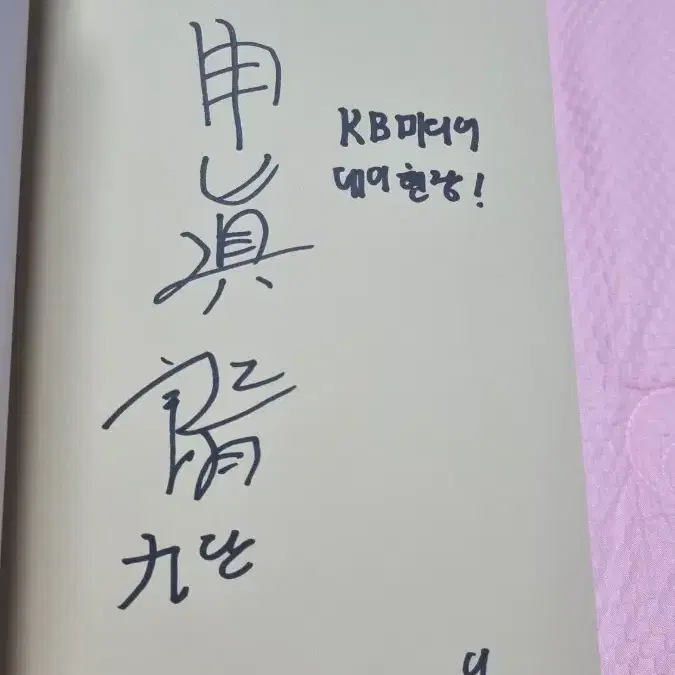 申眞諝
九단
KB미디어
데이 현장!